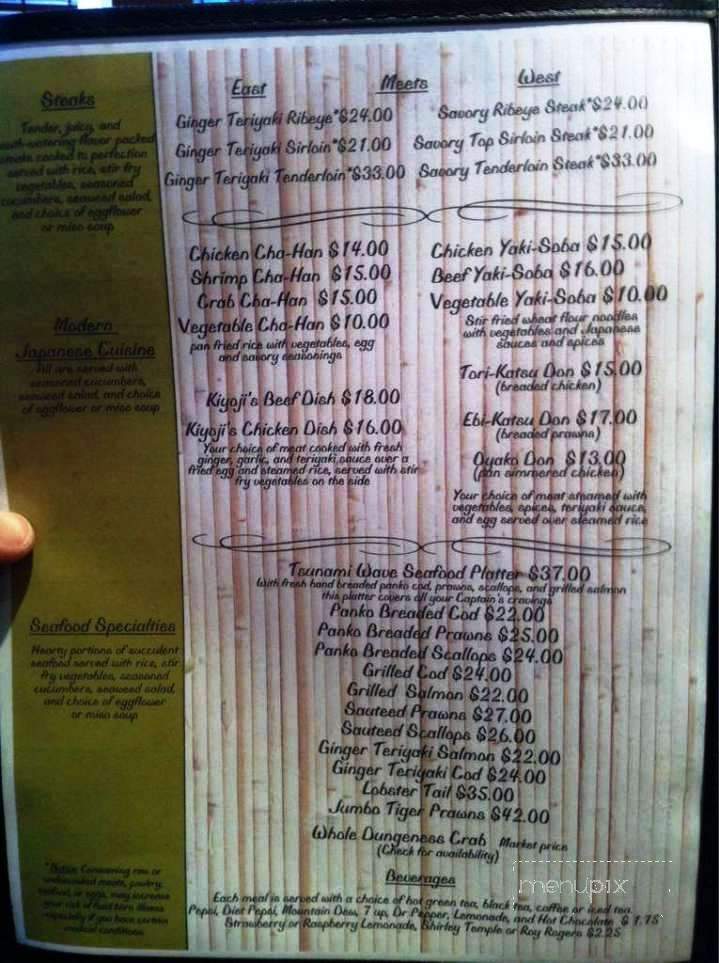 East Meets West
Steaks
Tender, juicy, and
mouth-watering flavor packed
steaks cooked to perfection
served with rice, stir fry
vegetables, seasoned
cucumbers, seaweed salad,
and choice of eggflower
or miso soup
Ginger Teriyaki Ribeye*$24.00
Ginger Teriyaki Sirloin*$21.00
Ginger Teriyaki Tenderloin*$33.00
Savory Ribeye Steak*$24.00
Savory Top Sirloin Steak*$21.00
Savory Tenderloin Steak*$33.00
Modern
Japanese Cuisine
All are served with
seasoned cucumbers,
seaweed salad, and choice
of eggflower or miso soup
Chicken Cha-Han $14.00
Shrimp Cha-Han $15.00
Crab Cha-Han $15.00
Vegetable Cha-Han $10.00
pan fried rice with vegetables, egg
and savory seasonings
Kiyoji's Beef Dish $18.00
Kiyoji's Chicken Dish $16.00
Your choice of meat cooked with fresh
ginger, garlic, and teriyaki sauce over a
fried egg and steamed rice, served with stir
fry vegetables on the side
Chicken Yaki-Soba $15.00
Beef Yaki-Soba $16.00
Vegetable Yaki-Soba $10.00
Stir fried wheat flour noodles
with vegetables and Japanese
sauces and spices
Tori-Katsu Don $15.00
(breaded chicken)
Ebi-Katsu Don $17.00
(breaded prawns)
Oyako Don $13.00
(pan simmered chicken)
Your choice of meat steamed with
vegetables, spices, teriyaki sauce,
and egg served over steamed rice
Seafood Specialties
Hearty portions of succulent
seafood served with rice, stir
fry vegetables, seasoned
cucumbers, seaweed salad,
and choice of eggflower
or miso soup
Tsunami Wave Seafood Platter $37.00
With fresh hand breaded panko cod, prawns, scallops, and grilled salmon
this platter covers all your Captain's cravings
Panko Breaded Cod $22.00
Panko Breaded Prawns $25.00
Panko Breaded Scallops $24.00
Grilled Cod $24.00
Grilled Salmon $22.00
Sauteed Prawns $27.00
Sauteed Scallops $26.00
Ginger Teriyaki Salmon $22.00
Ginger Teriyaki Cod $24.00
Lobster Tail $35.00
Jumbo Tiger Prawns $42.00
Whole Dungeness Crab Market price
(Check for availability)
Beverages
Each meal is served with a choice of hot green tea, black tea, coffee or iced tea.
Pepsi, Diet Pepsi, Mountain Dew, 7 up, Dr Pepper, Lemonade, and Hot Chocolate $ 1.75
Strawberry or Raspberry Lemonade, Shirley Temple or Roy Rogers $2.25
*Notice: Consuming raw or
undercooked meats, poultry,
seafood, or eggs, may increase
your risk of food born illness
especially if you have certain
medical conditions
menupix